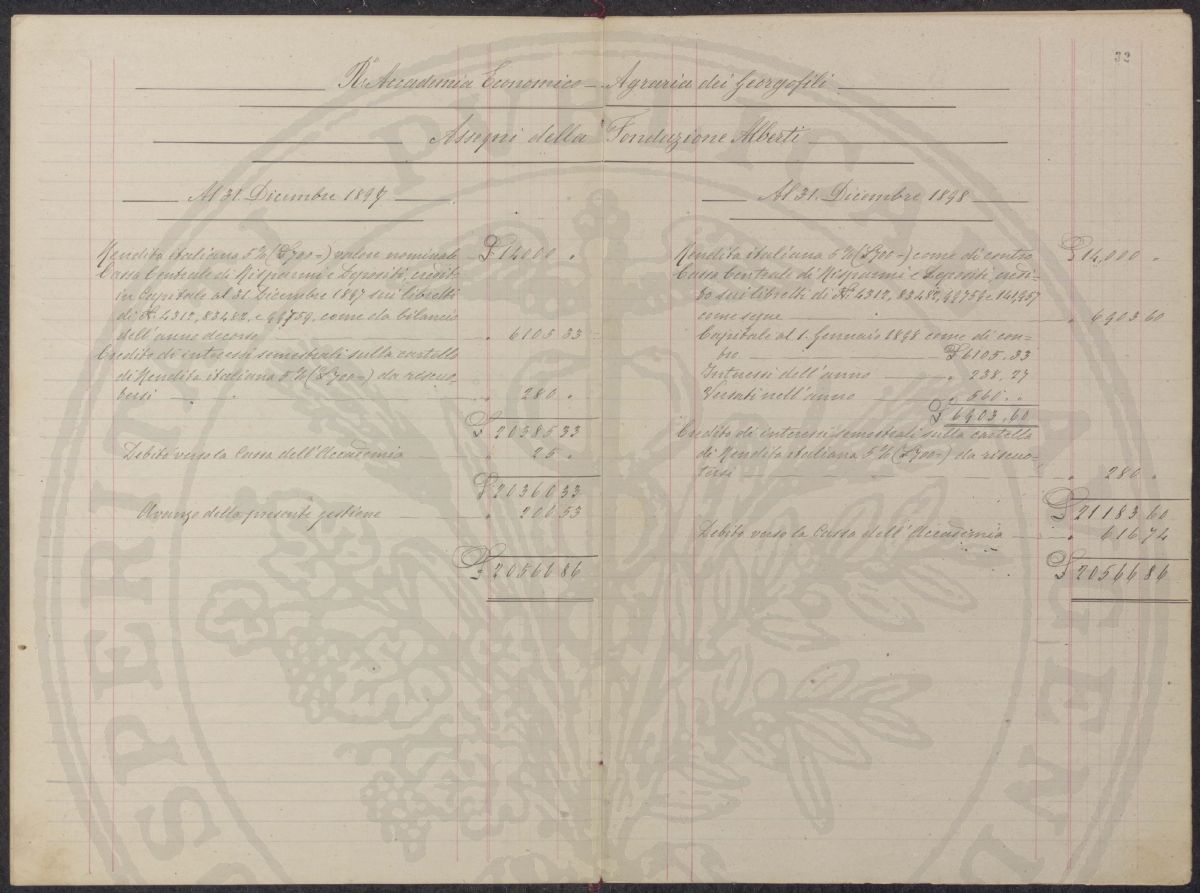 32
R.ª Accademia Economico-Agraria dei Georgofili
Assegni della Fondazione Alberti
Al 31. Dicembre 1897
Rendita italiana 5% (£700=) valore nominale £ 14000 "
Cassa Centrale di Risparmi e Depositi, credito
in Capitale al 31 Dicembre 1897 sui libretti
di N.i 4312, 83482, e 99759, come da bilancio
dell'anno decorso " 6105 33
Credito di interessi semestrali sulla cartella
di Rendita italiana 5% (£700=) da riscuo-
tersi " 280 "
£ 20385 33
Debito verso la Cassa dell'Accademia " 25 "
£ 20360 33
Avanzo della presente gestione " 206 53
£ 20566 86
Al 31. Dicembre 1898
Rendita italiana 5% (£700=) come di contro £ 14,000 "
Cassa Centrale di Risparmi e Depositi, credi-
to sui libretti di N.i 4312, 83482, 99759 e 141957
come segue " 6903 60
Capitale al 1. Gennaio 1898 come di con-
tro £ 6105.33
Interessi dell'anno " 238.27
Versati nell'anno " 560. "
£ 6903.60
Credito di interessi semestrali sulla cartella
di Rendita italiana 5% (£700=) da riscuo-
tersi " 280 "
£ 21183 60
Debito verso la Cassa dell'Accademia " 616 74
£ 20566 86